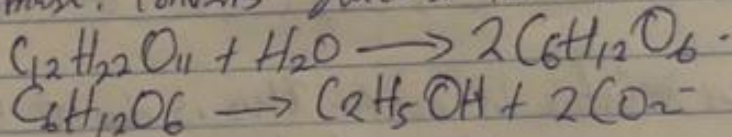 C₁₂H₂₂O₁₁ + H₂O ⟶ 2C₆H₁₂O₆.
C₆H₁₂O₆ ⟶ C₂H₅OH + 2CO₂-